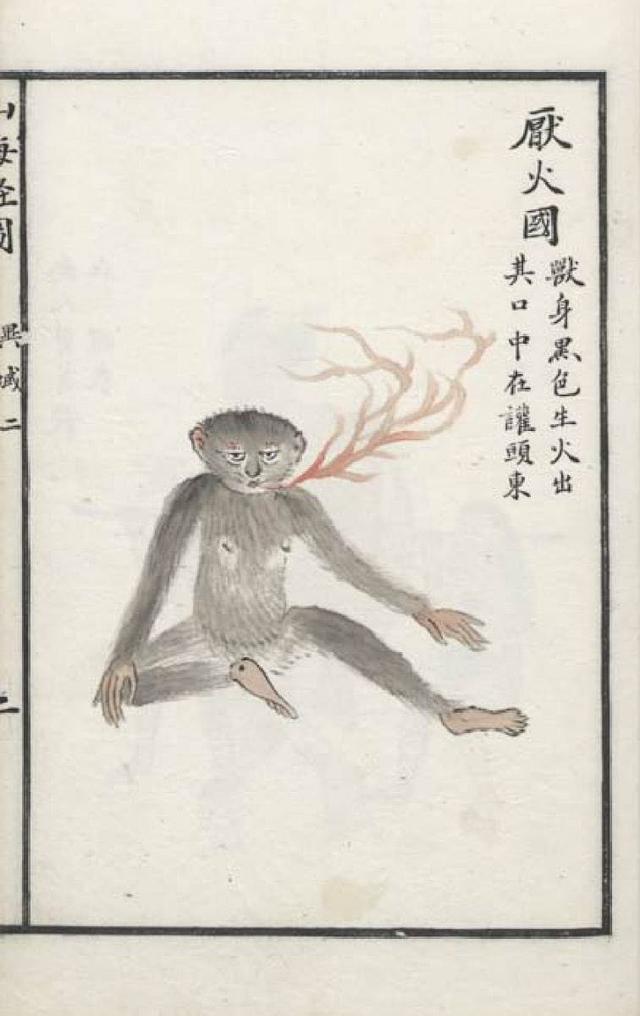 厭火國
獸身黑色生火出
其口中在讙頭東
山海經圖
異域二
二